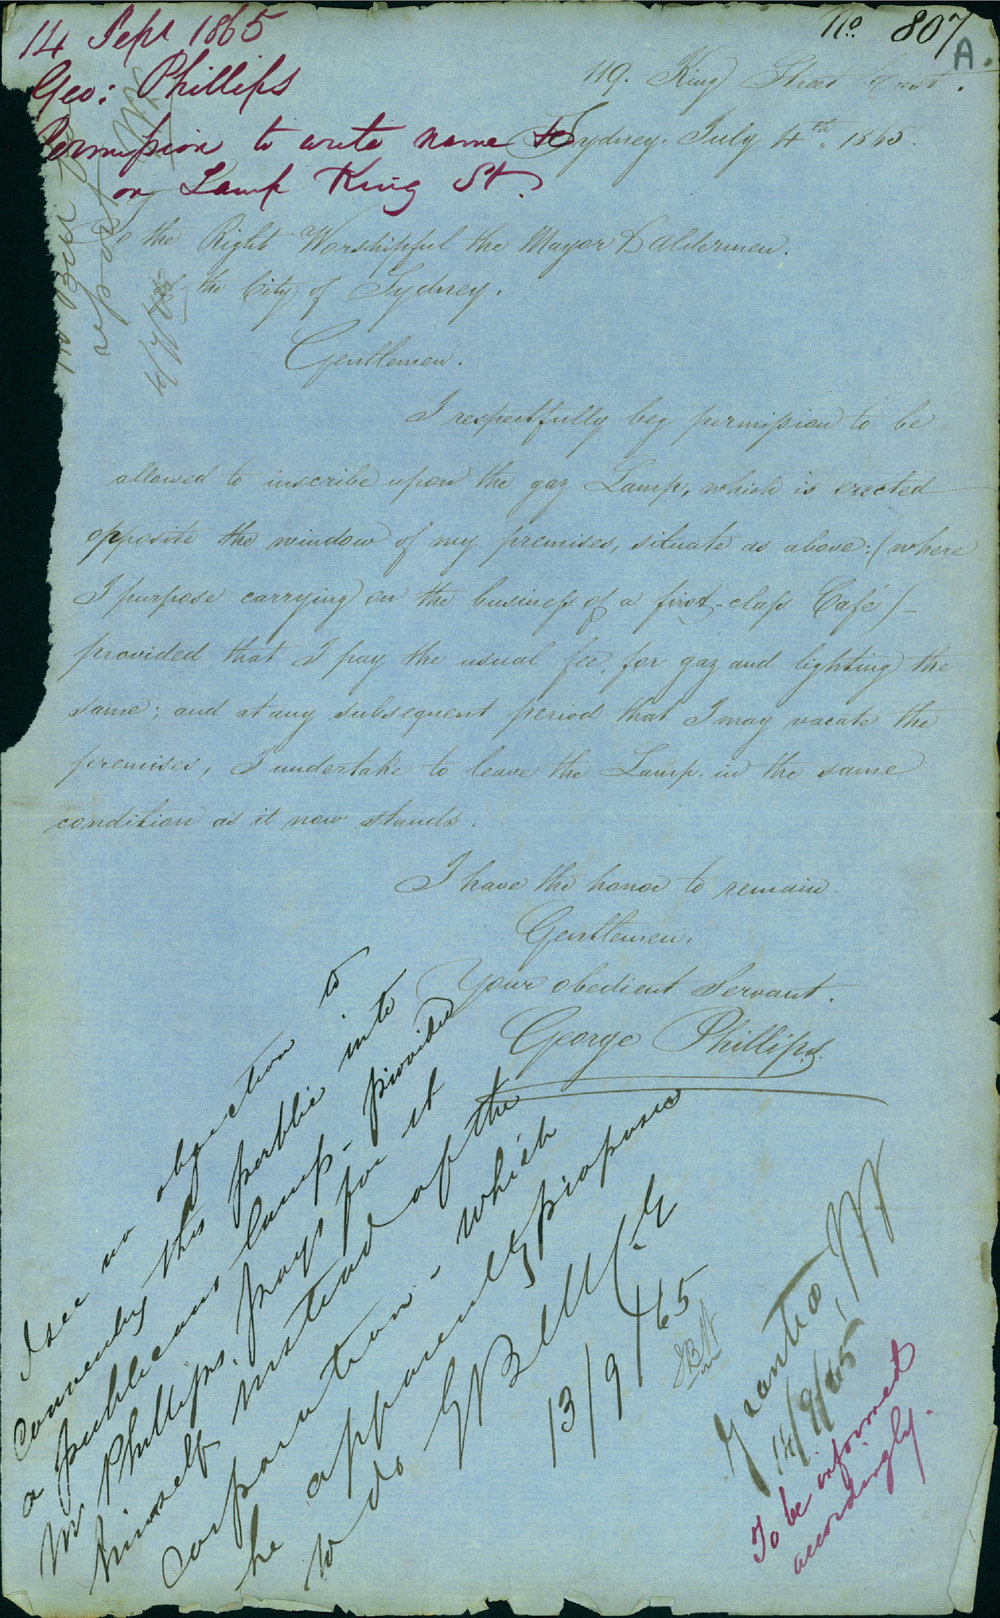 No. 807
A.
14 Sept 1865
Geo: Phillips
Permission to write name
on Lamp King St.
119. King Street East.
Sydney. July 4th. 1865.
To the Right Worshipful the Mayor & Aldermen.
of the City of Sydney.
Gentlemen.
I respectfully beg permission to be
allowed to inscribe upon the gaz Lamp, which is erected
opposite the window of my premises, situate as above: (where
I purpose carrying on the business of a first-class Café)-
provided that I pay the usual fee, for gaz and lighting the
same; and at any subsequent period that I may vacate the
premises, I undertake to leave the Lamp. in the same
condition as it now stands.
I have the honor to remain
Gentlemen.
Your obedient Servant.
George Phillips.
Mr Bell for
report
6/7/65
I see no objection to
converting this public into
a publicans lamp - provided
Mr Phillips. pays for it
himself instead of the
corporation - which
he apparently proposes
to do E Bell C.E
13/9/65
Granted
14/9/65
To be informed
accordingly.